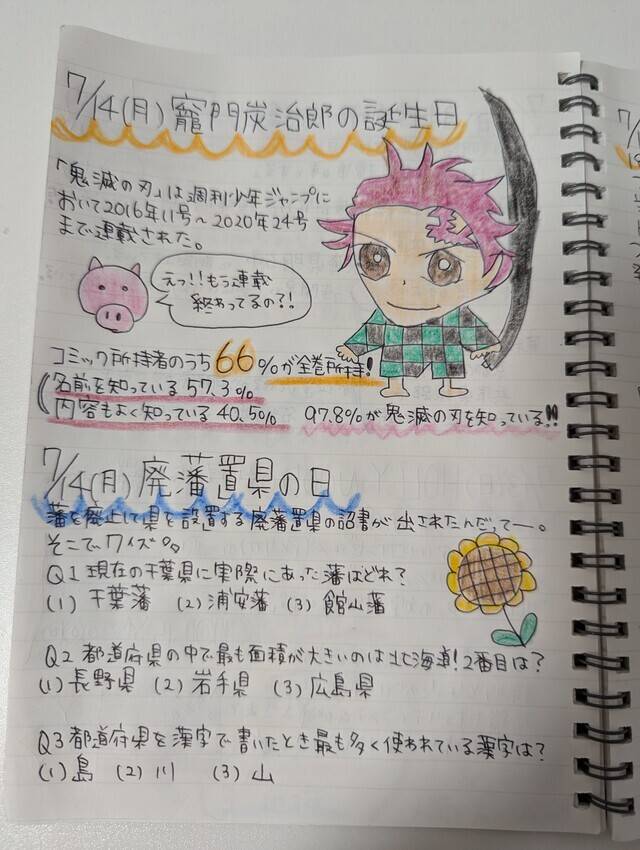 7/14(月)竈門炭治郎の誕生日
「鬼滅の刃」は週刊少年ジャンプに
おいて2016年11号~2020年24号
まで連載された。
えっ!!もう連載
終わってるの?!
コミック所持者のうち66%が全巻所持!
名前を知っている57.3%
内容もよく知っている40.5%
97.8%が鬼滅の刃を知っている!!
7/14(月)廃藩置県の日
藩を廃止して県を設置する廃藩置県の詔書が出されたんだってー。
そこでクイズ。
Q1 現在の千葉県に実際にあった藩はどれ?
(1) 千葉藩 (2) 浦安藩 (3) 館山藩
Q2 都道府県の中で最も面積が大きいのは北海道!2番目は?
(1) 長野県 (2) 岩手県 (3) 広島県
Q3 都道府県を漢字で書いたとき最も多く使われている漢字は?
(1) 島 (2) 川 (3) 山